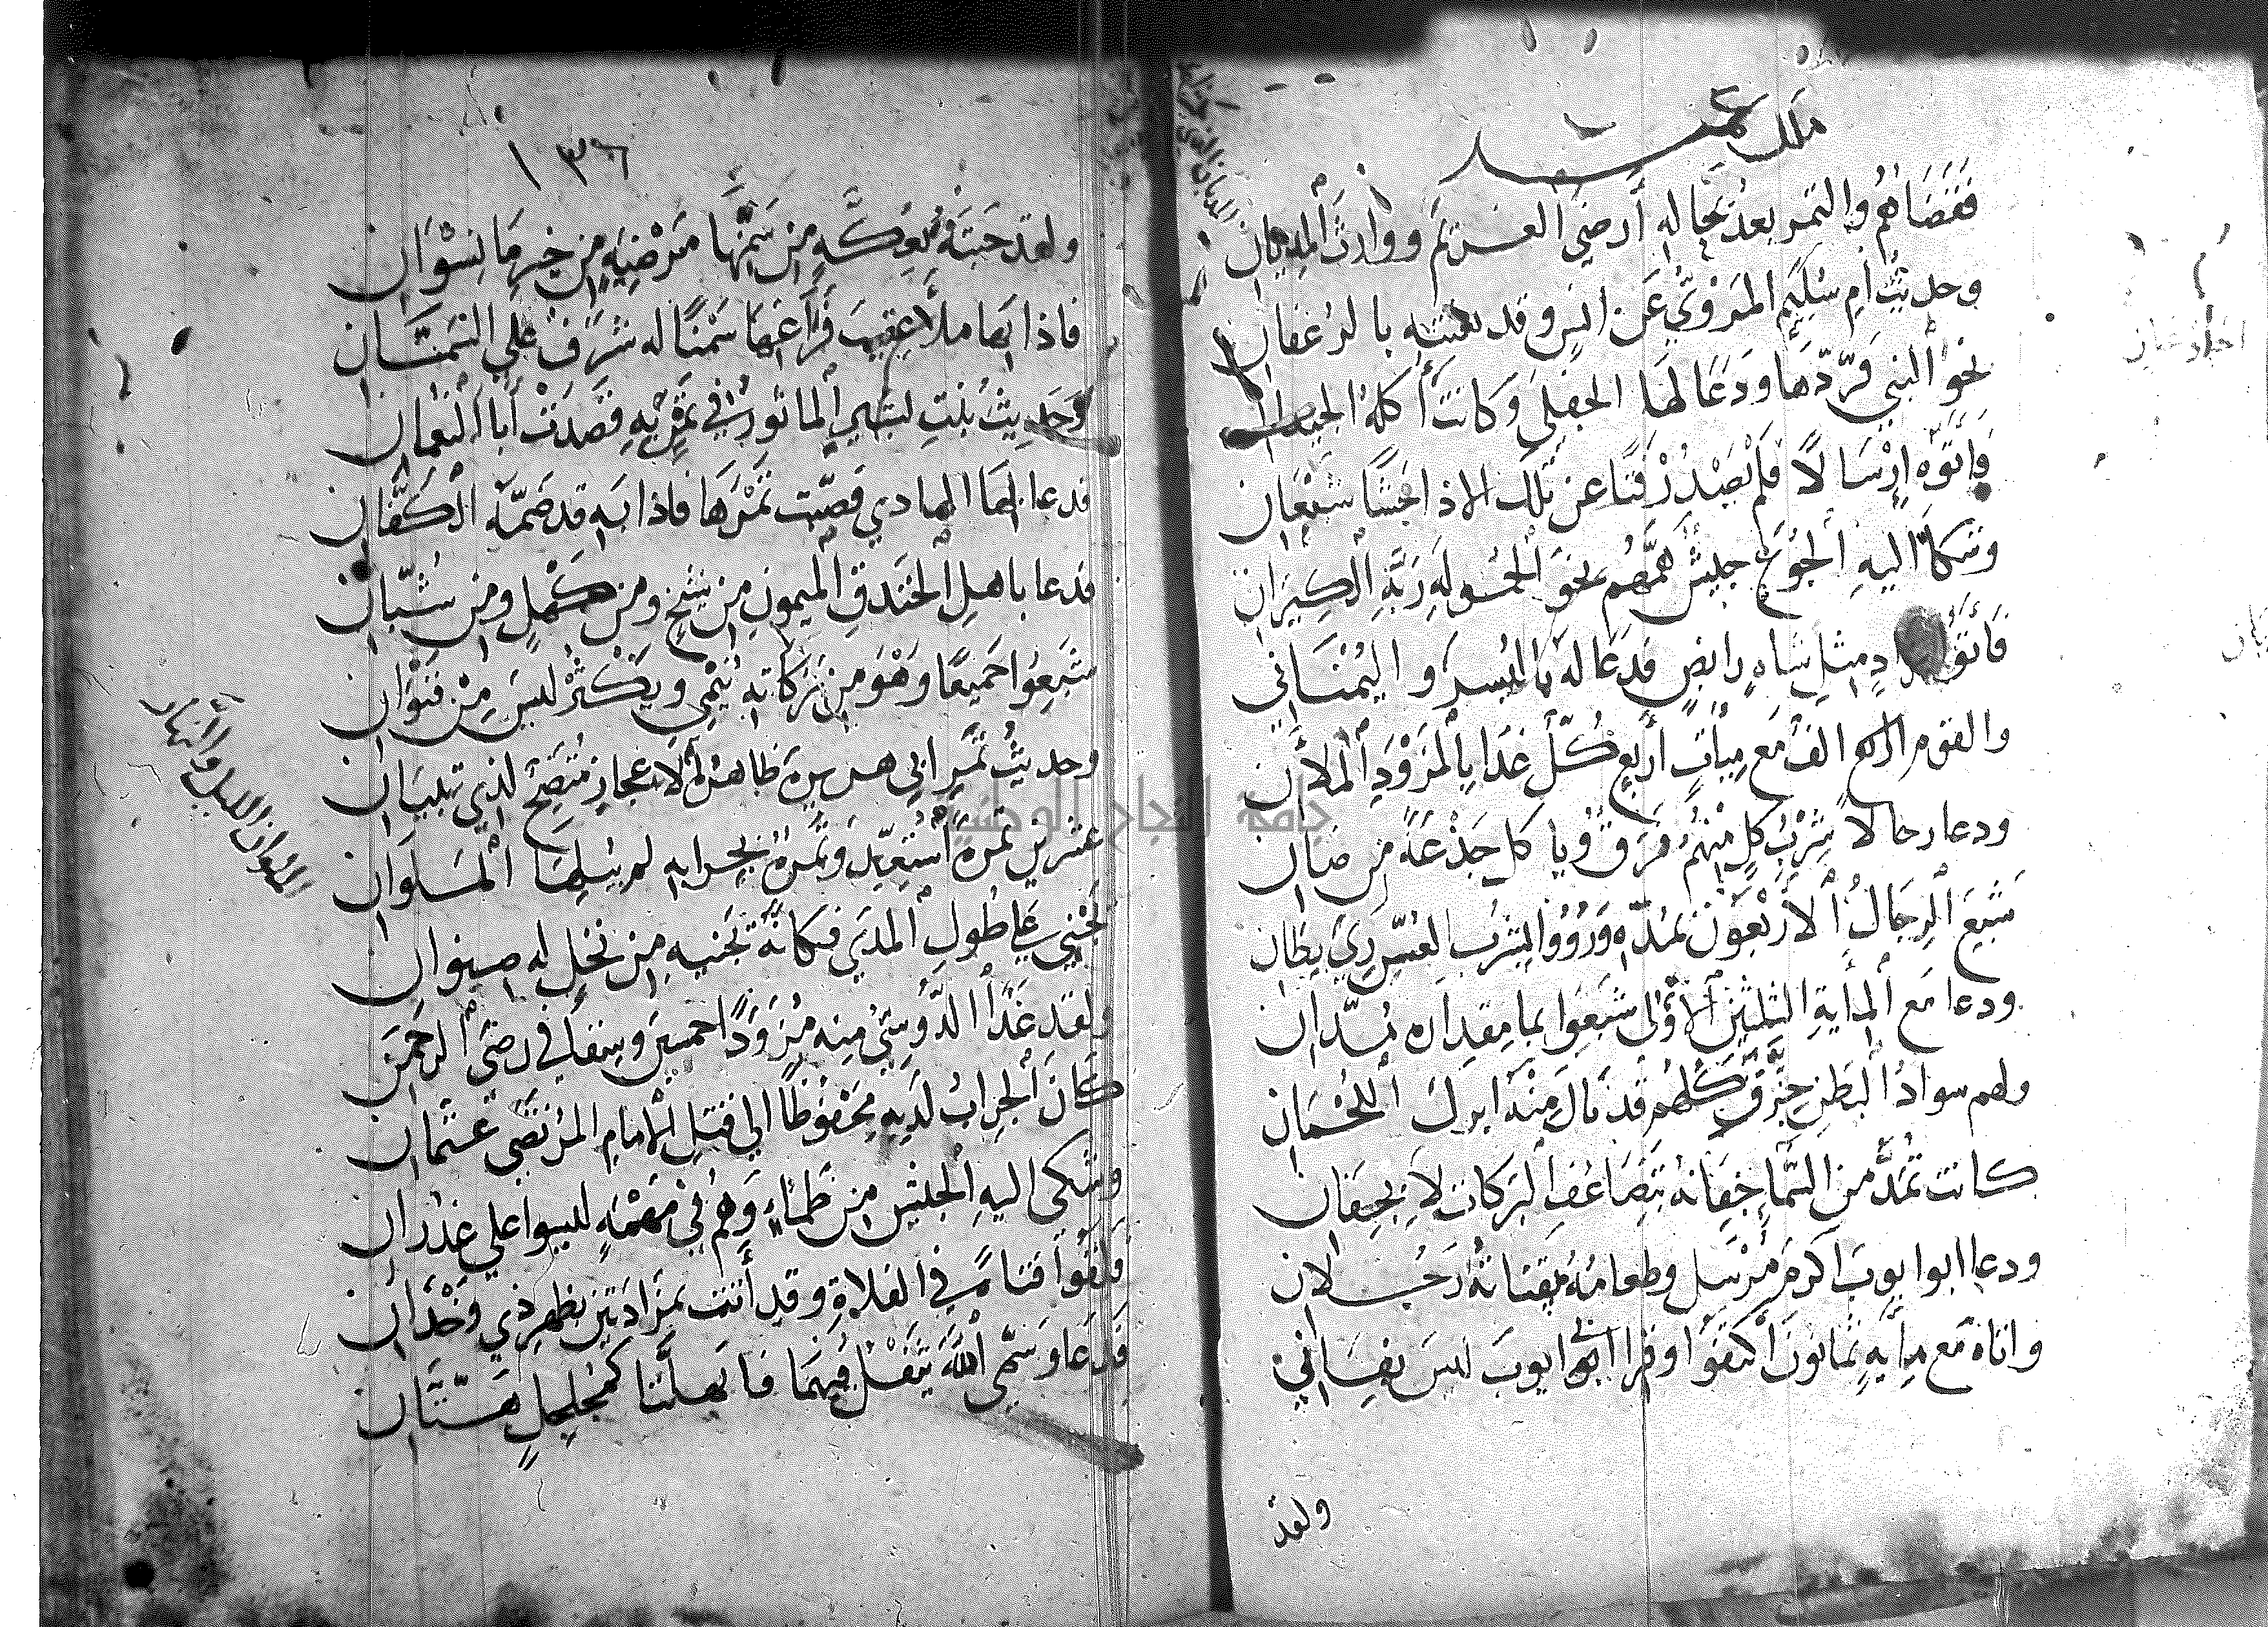 ملك
فقضاهم والتمر بعد بحاله أرضى الغريم ووارث المديان
وحديث أم سليم المروي عن انس وقد بعثته بالرغفان
نحو النبي فردها ودعا لها الجفلى وكانت أكلة
فأتوه ارسالا فلم تصدر فتا عن تلك الا ذا حشا شبعان
وشكا اليه الجوع جيش همهم نحو الحمولة ربة الكيران
فأتوا مثل شاه رابض فدعا له باليسر واليمنان
والقوم الف مع ميات أربع كل غدا بالمزود الملآن
ودعا رجالا شرب كل منهم فرق ويأكل جذعة من ضان
شبع الرجال الأربعون بمده ورووا بشرب العس ري بطان
ودعا مع المأية الثلثين الأولى شبعوا بما مقداره مدان
ولهم سواد البطن حز فكلهم قد نال منه ابرك اللحمان
كانت تمد من السما جفانه بتضاعف البركات لا بجفان
ودعا ابو ايوب اكرم مرسل وطعامه يقتاته رجلان
واتاه مع مأية ثمانون اكتفوا وقرا ابي ايوب ليس بفاني
ولقد
١٣٦
ولقد حبته بعكة من سمنها مرضية من خير ما نسوان
فاذا بها ملأ عقيب فراغها سمنا له شرف على السمنان
وحديث بنت بشير المأثور في تمر به قصدت أبا النعمان
فدعا لها الهادي فصبت تمرها فاذا به قد ضمه الكفان
فدعا باهل الخندق الميمون من شيخ ومن كهل ومن شبان
شبعوا جميعا وهو من بركاته ينمي ويكثر ليس من قنوان
وحديث تمر ابي هريرة ظاهر الاعجاز متضح لذي تبيان
عشرين تمرة استعد وتمرة بجرابه لم يبلها الملوان
يجني على طول المدى فكانه تجنيه من نخل له صنوان
ولقد غدا الدوسي منه مزودا خمسين وسقا في رضى الرحمن
كان الجراب لديه محفوظا الى قتل الامام المرتضى عثمان
وشكى اليه الجيش من ظماء وهم في مهمه ليسوا على غدران
فلقوا فتاة في الفلاة وقد أتت بمزادتين بظهر ذي وخدان
فدعا وسمى الله يتفل فيهما فانهلتا كمجلجل هتان
الملوان الليل والنهار